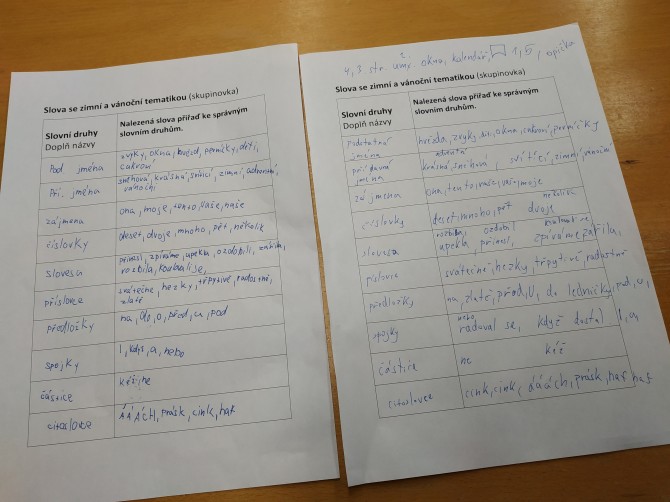 Slova se zimní a vánoční tematikou (skupinovka)
Slovní druhy
Doplň názvy
Nalezená slova přiřaď ke správným
slovním druhům.
Pod jména
zvyky, okna, hvězd, perníčky, dětí,
cukroví
Příd. jména
sněhová, krásná, svítící, zimní, adventní
vánoční
zájmena
ona, moje, tento, vaše, naše
číslovky
deset, dvoje, mnoho, pět, několik
slovesa
přinesl, zpíváme, upekla, ozdobili, zářila,
rozbila, koulovali se,
příslovce
svátečně, hezky, třpytivě, radostně,
zlatě
předložky
na, do, o, před, u, pod
spojky
i, když, a, nebo
částice
kéž, ne
citoslovce
ÁÁÁCH, prásk, cink, haf
4, 3 str. okna, kalendář, 1, 5, opička
Slova se zimní a vánoční tematikou (skupinovka)
Slovní druhy
Doplň názvy
Nalezená slova přiřaď ke správným
slovním druhům.
podstatná
jména
hvězda, zvyky, okna, cukroví, perníčky
přídavná
jména
adventní
krásná, sněhová, svítící, zimní, vánoční
zájmena
ona, tento, vaše, moje
číslovky
několik
deset, mnoho, pět dvoje
slovesa
rozbila, ozdobil
upekla přinesl, zpíváme, zářila,
příslovce
svátečně, hezky, třpytivě, radostně
předložky
na, zlatě, před, U, do ledničky, pod, u,
spojky
nebo
radoval se, když dostal i, a
částice
ne kéž
citoslovce
cink, cink, ááách, prásk, haf haf